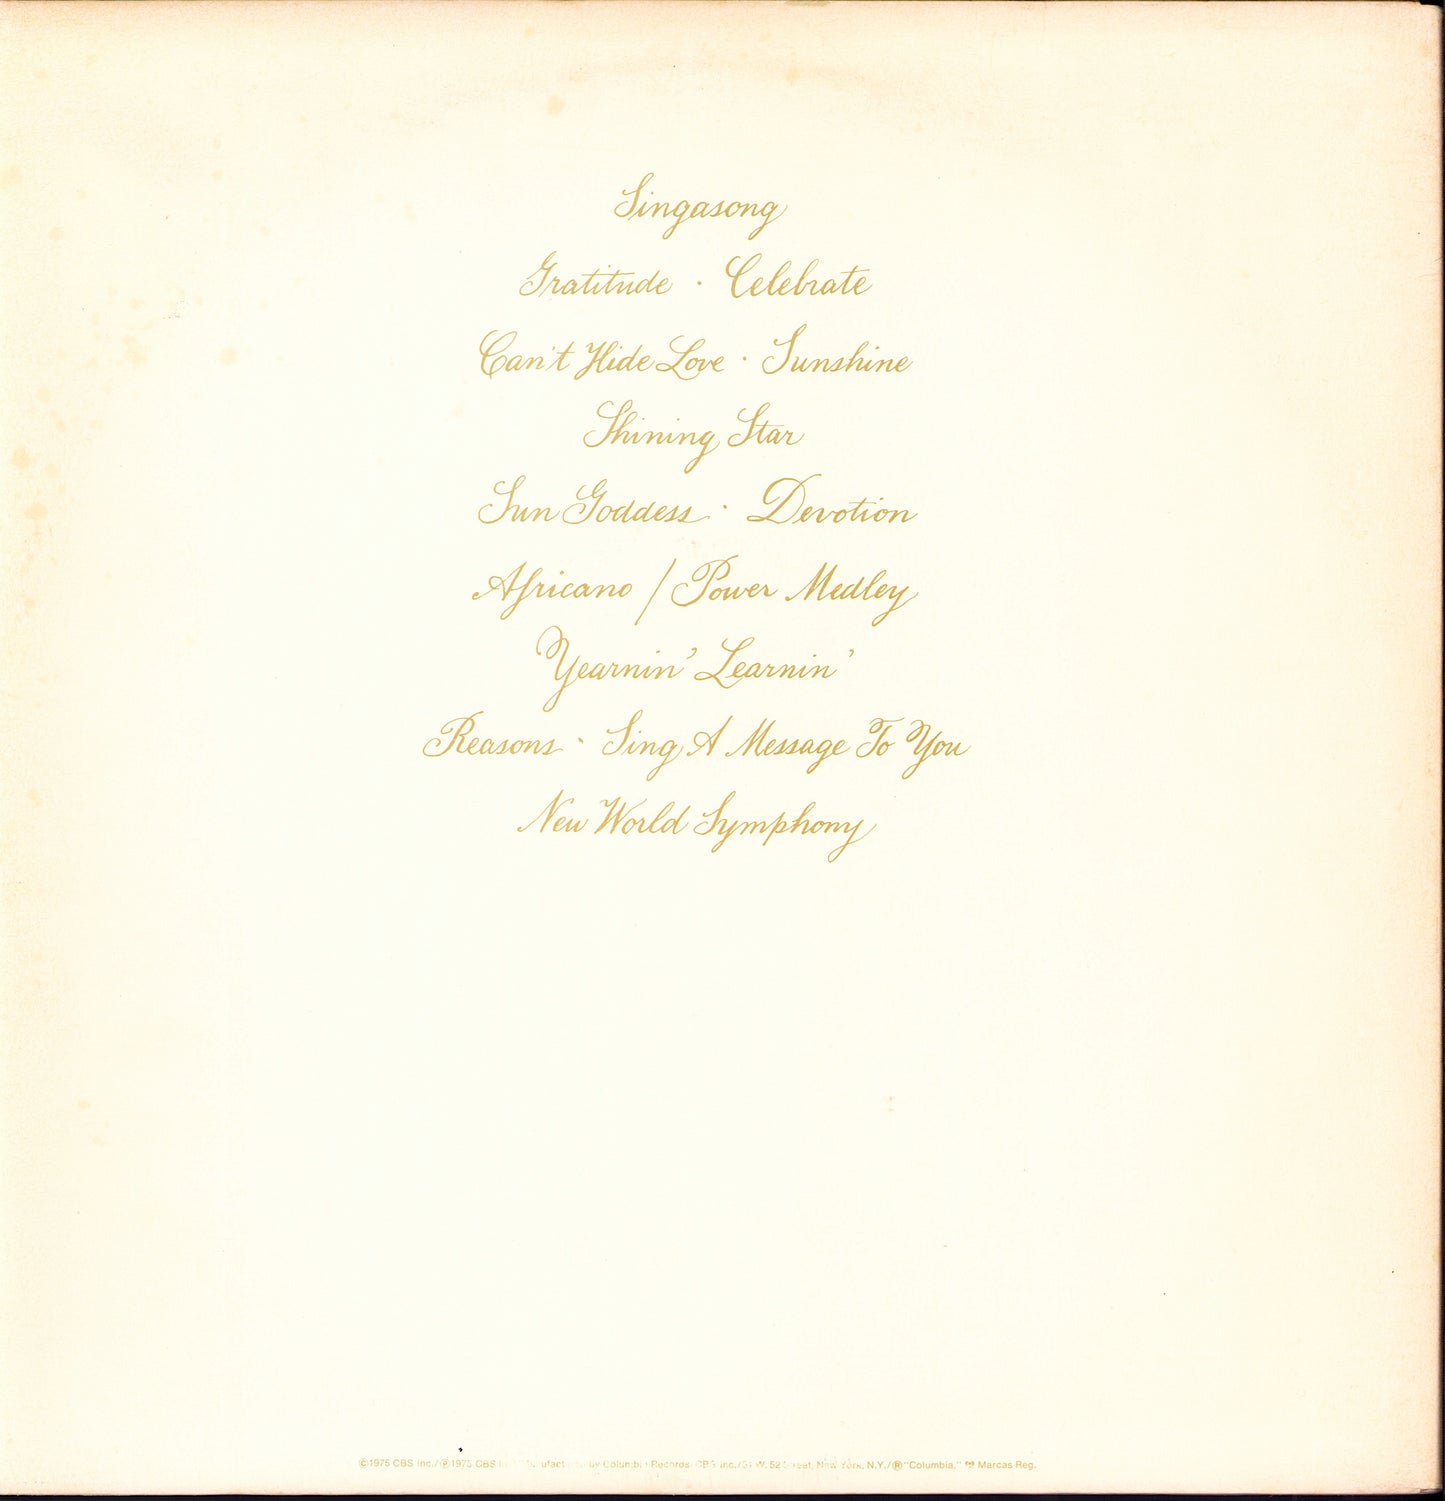 Singasong
Gratitude · Celebrate
Can't Hide Love · Sunshine
Shining Star
Sun Goddess · Devotion
Africano / Power Medley
Yearnin' Learnin'
Reasons · Sing A Message To You
New World Symphony
©1975 CBS Inc./℗1975 CBS by Columbia Records CBS Inc./51 W. 52 Street, New York, N.Y./®"Columbia," Marcas Reg.